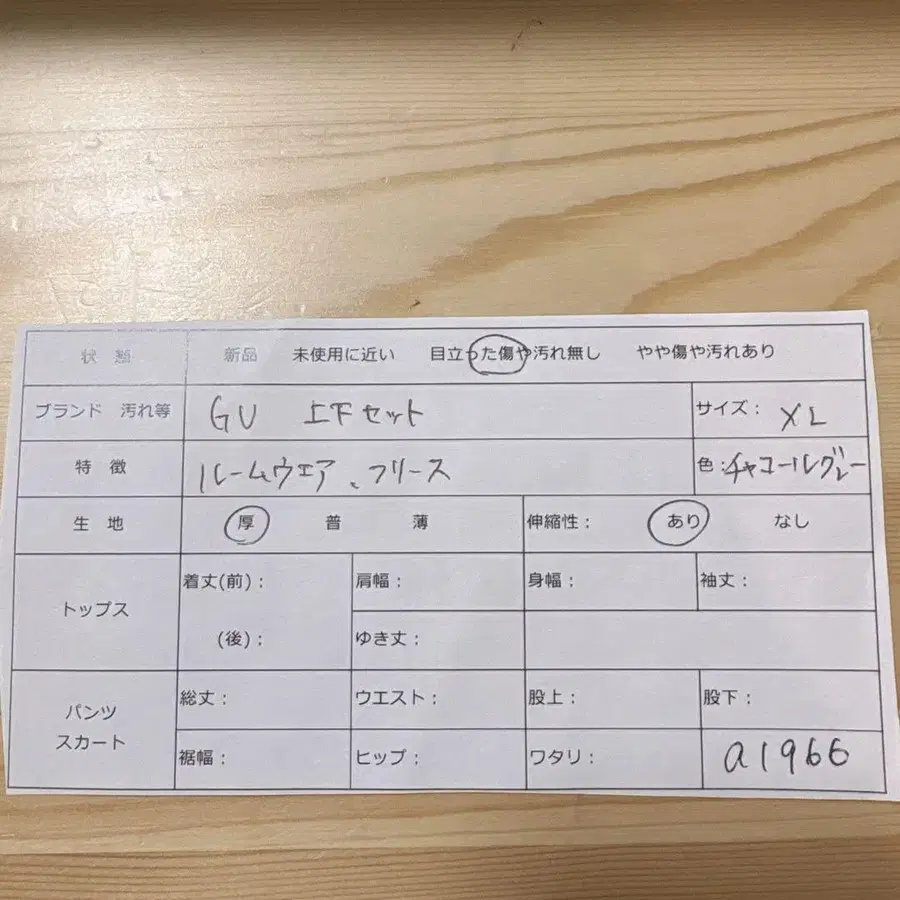 状 態 新品 未使用に近い 目立った傷や汚れ無し やや傷や汚れあり
ブランド 汚れ等 GU 上下セット サイズ： XL
特 徴 ルームウエア、フリース 色：チャコールグレー
生 地 厚 普 薄 伸縮性： あり なし
トップス 着丈(前)： 肩幅： 身幅： 袖丈：
(後)： ゆき丈：
パンツ スカート 総丈： ウエスト： 股上： 股下：
裾幅： ヒップ： ワタリ： a1966